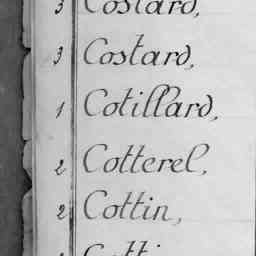 3 Costard,
3 Costard,
1 Cotillard,
2 Cotterel,
2 Cottin,